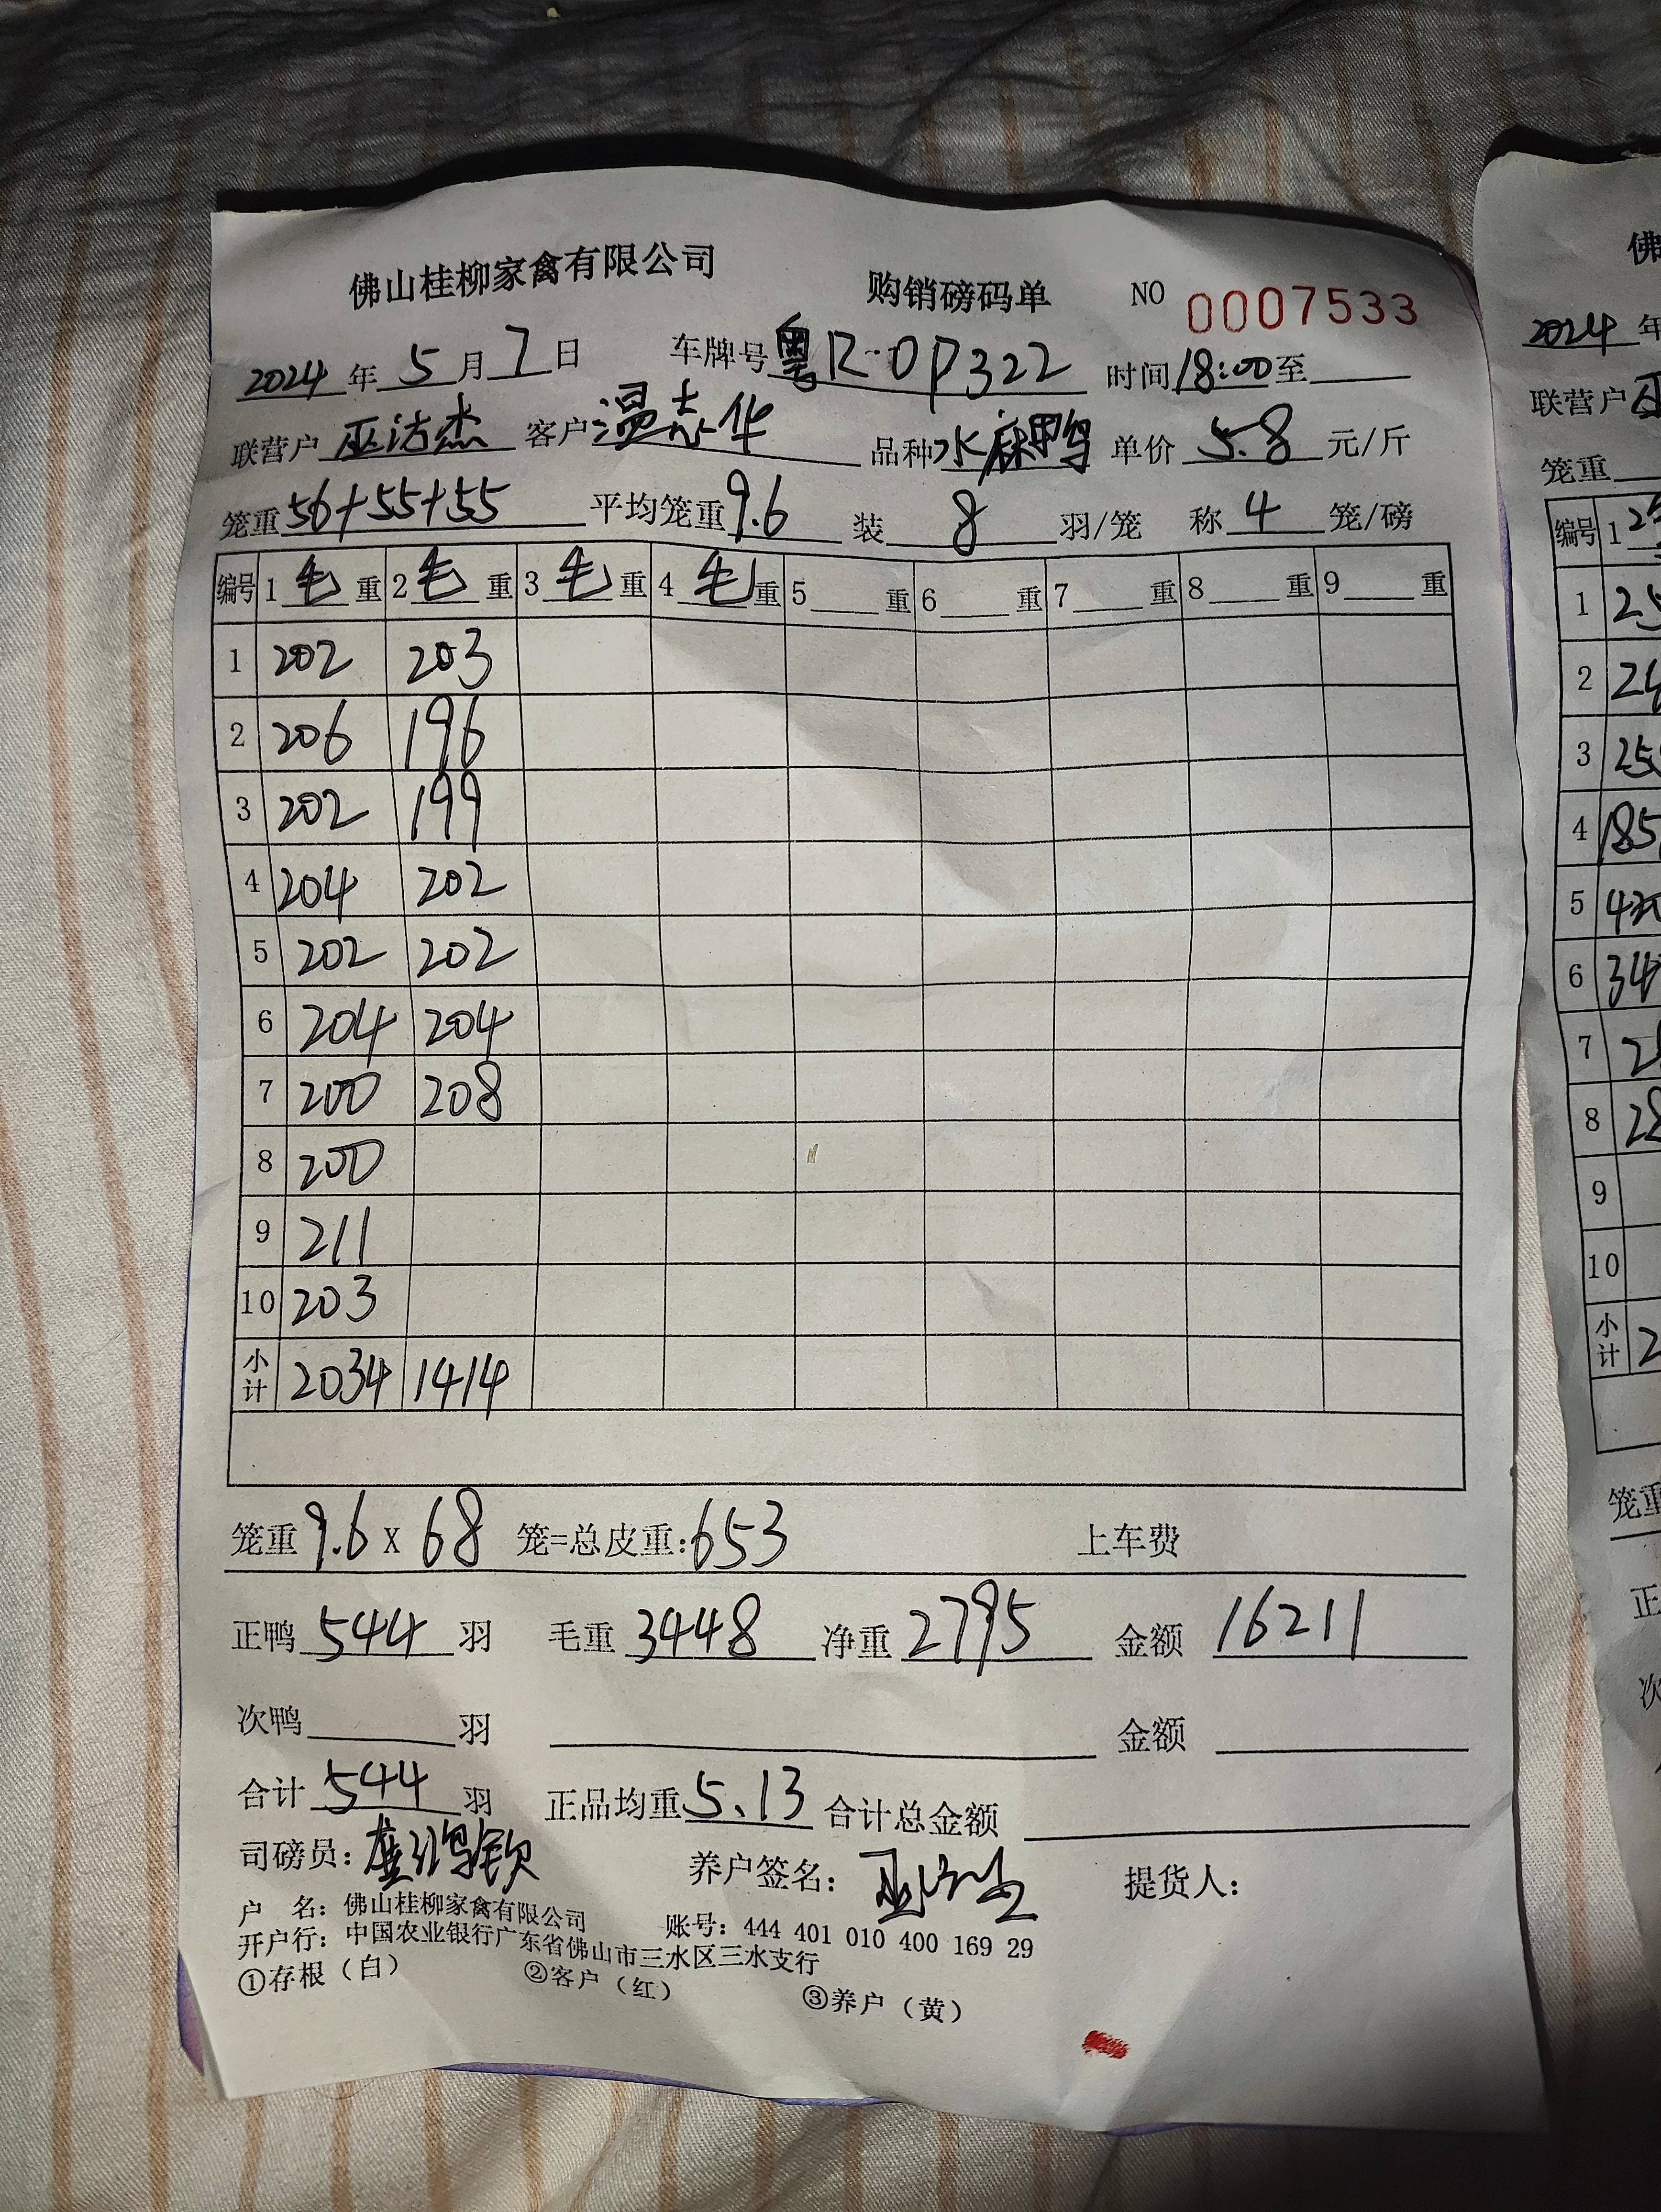 佛山桂柳家禽有限公司 购销磅码单 NO 0007533
2024 年 5 月 7 日 车牌号 粤R·0P322 时间 18:00 至
联营户 巫洁杰 客户 温志华 品种 水麻鸭 单价 5.8 元/斤
笼重 56+55+55 平均笼重 9.6 装 8 羽/笼 称 4 笼/磅
编号 1 毛 重 2 毛 重 3 毛 重 4 毛 重 5 重 6 重 7 重 8 重 9 重
1 202 203
2 206 196
3 202 199
4 204 202
5 202 202
6 204 204
7 200 208
8 200
9 211
10 203
小计 2034 1414
笼重 9.6 X 68 笼=总皮重: 653 上车费
正鸭 544 羽 毛重 3448 净重 2795 金额 16211
次鸭 羽 金额
合计 544 羽 正品均重 5.13 合计总金额
司磅员: 养户签名: 提货人:
户 名: 佛山桂柳家禽有限公司 账号: 444 401 010 400 169 29
开户行: 中国农业银行广东省佛山市三水区三水支行
①存根（白） ②客户（红） ③养户（黄）
佛
2024 年
联营户 巫
笼重
编号 1
1
2
3
4 185
5
6
7
8
9
10
小计 2
笼重
正
次